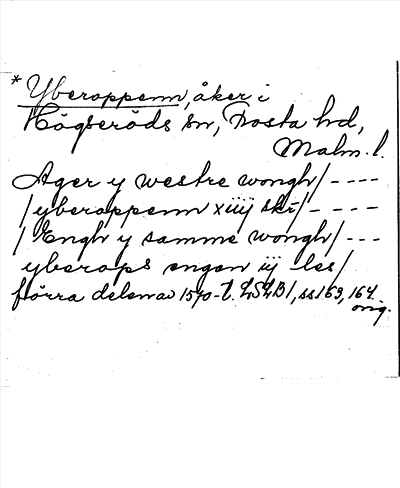 * Yberoppenn, åker i
Högseröds sn, Frosta hd,
Malm. l.
Ager y westre wongh/ ----
/yberoppenn xiiij skr/ ----
/ Engh y samme wongh/ ---
yberops engen iij les/
förra delen av 1500-t. LSLB1, ss 163, 164.
orig.